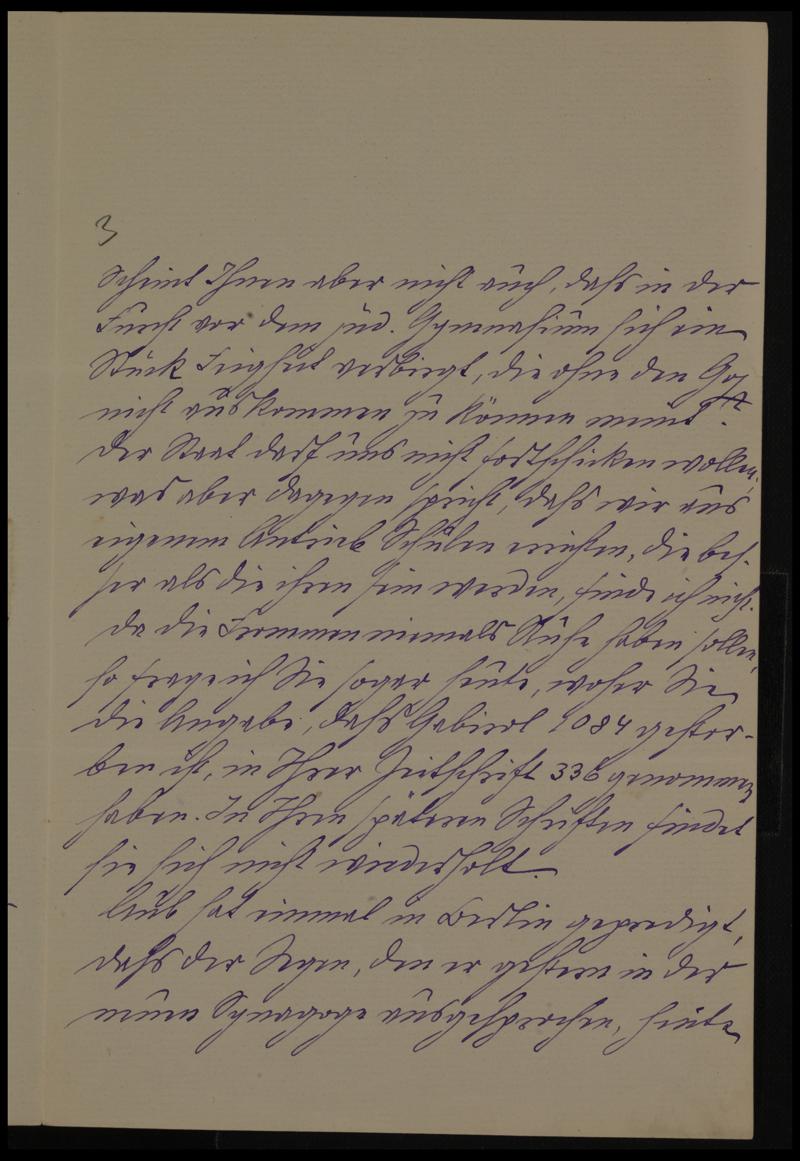 3
Scheint Ihnen aber nicht auch, dass in der
Furcht vor dem jüd. Gymnasium sich ein
Stück Feigheit verbirgt, die ohne den Goj
nicht auskommen zu können meint?
Der Staat darf uns nicht fortschicken wollen,
was aber dagegen spricht, dass wir aus
eigenem Antrieb Schulen errichten, die bes-
ser als die ihren sein werden, finde ich nicht.
Da die Frommen niemals Ruhe haben sollen,
so frage ich Sie sogar heute, woher Sie
die Angabe, dass Gabirol 1084 gestor-
ben ist, in Ihrer Zeitschrift 336 genommen
haben. In Ihren späteren Schriften findet
sie sich nicht wiederholt.
Aub hat einmal in Berlin gepredigt,
dass der Segen, den er gestern in der
neuen Synagoge ausgesprochen, heute